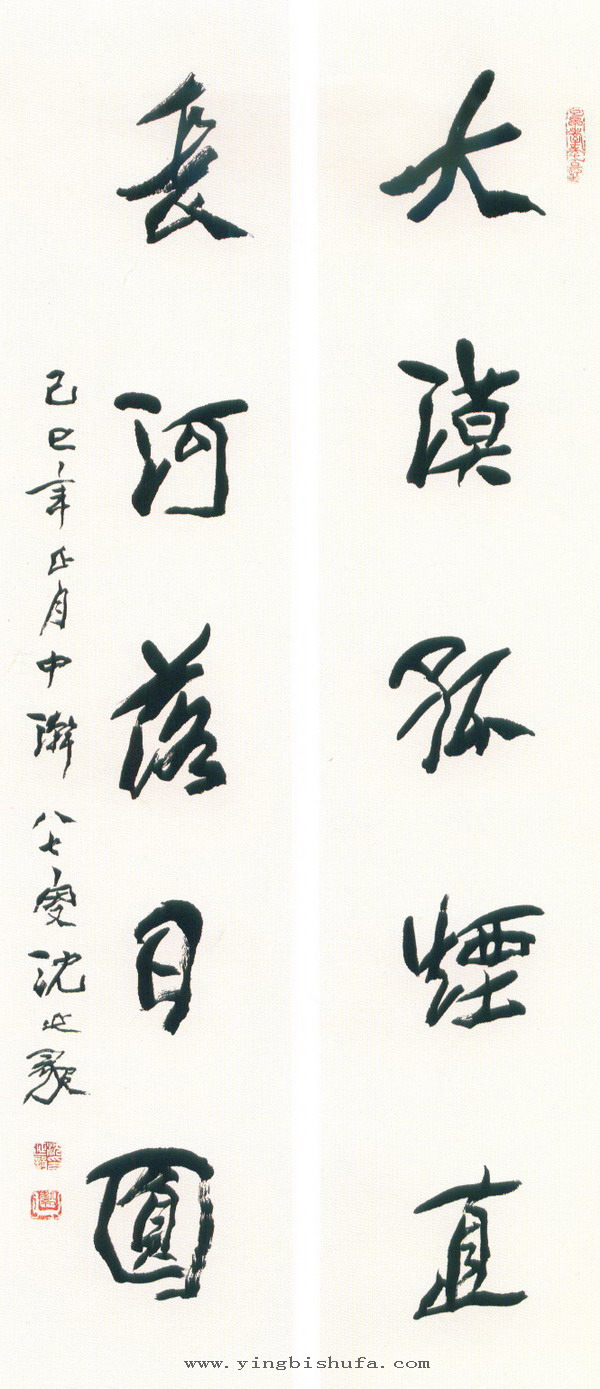 大漠孤煙直
長河落日圓
己巳年正月中澣八七叟沈延毅
www.yingbishufa.com